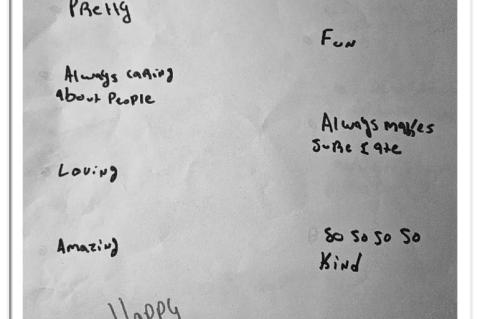 Pretty
Always caring
About People
Loving
Amazing
Happy
Fun
Always makes
sure I ate
So so so so
Kind